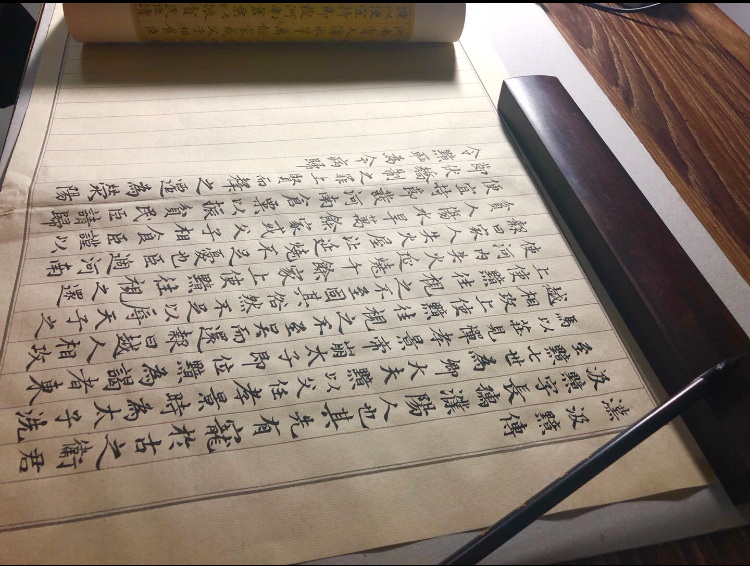 汲黯傳
汲黯字長孺濮陽人也其先有寵於古之衛君
至黯七世世為卿大夫黯以父任孝景時為太子洗
馬以莊見憚孝景帝崩太子即位黯為謁者東
越相攻上使黯往視之不至至吳而還報曰越人相攻
固其俗然不足以辱天子之
使河內失火延燒千餘家上使黯往視之還
報曰家人失火屋比延燒不足憂也臣過河南
貧人傷水旱萬餘家或父子相食臣謹以
便宜持節發河南倉粟以振貧民臣請歸
節伏矯制之罪上賢而釋之遷為滎陽
令黯恥為令病歸